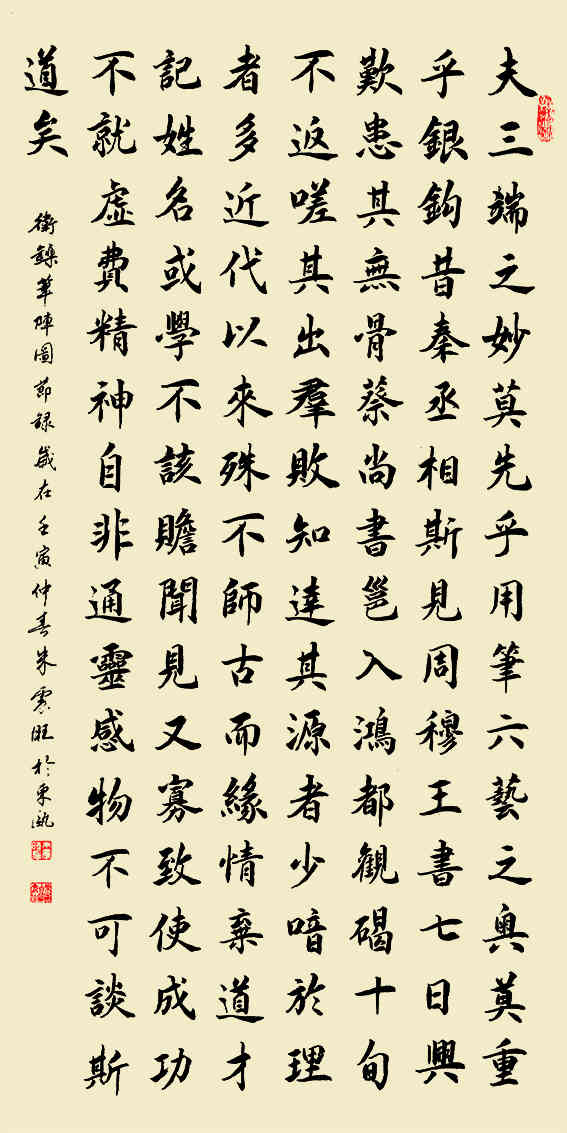 夫三端之妙莫先乎用筆六藝之奧莫重
乎銀鈎昔秦丞相斯見周穆王書七日興
歎患其無骨蔡尚書邕入鴻都觀碣十旬
不返嗟其出羣敗知達其源者少喑於理
者多近代以來殊不師古而緣情棄道才
記姓名或學不該贍聞見又寡致使成功
不就虛費精神自非通靈感物不可談斯
道矣
衛鑠筆陣圖節錄歲在壬寅仲春朱雲旺於東